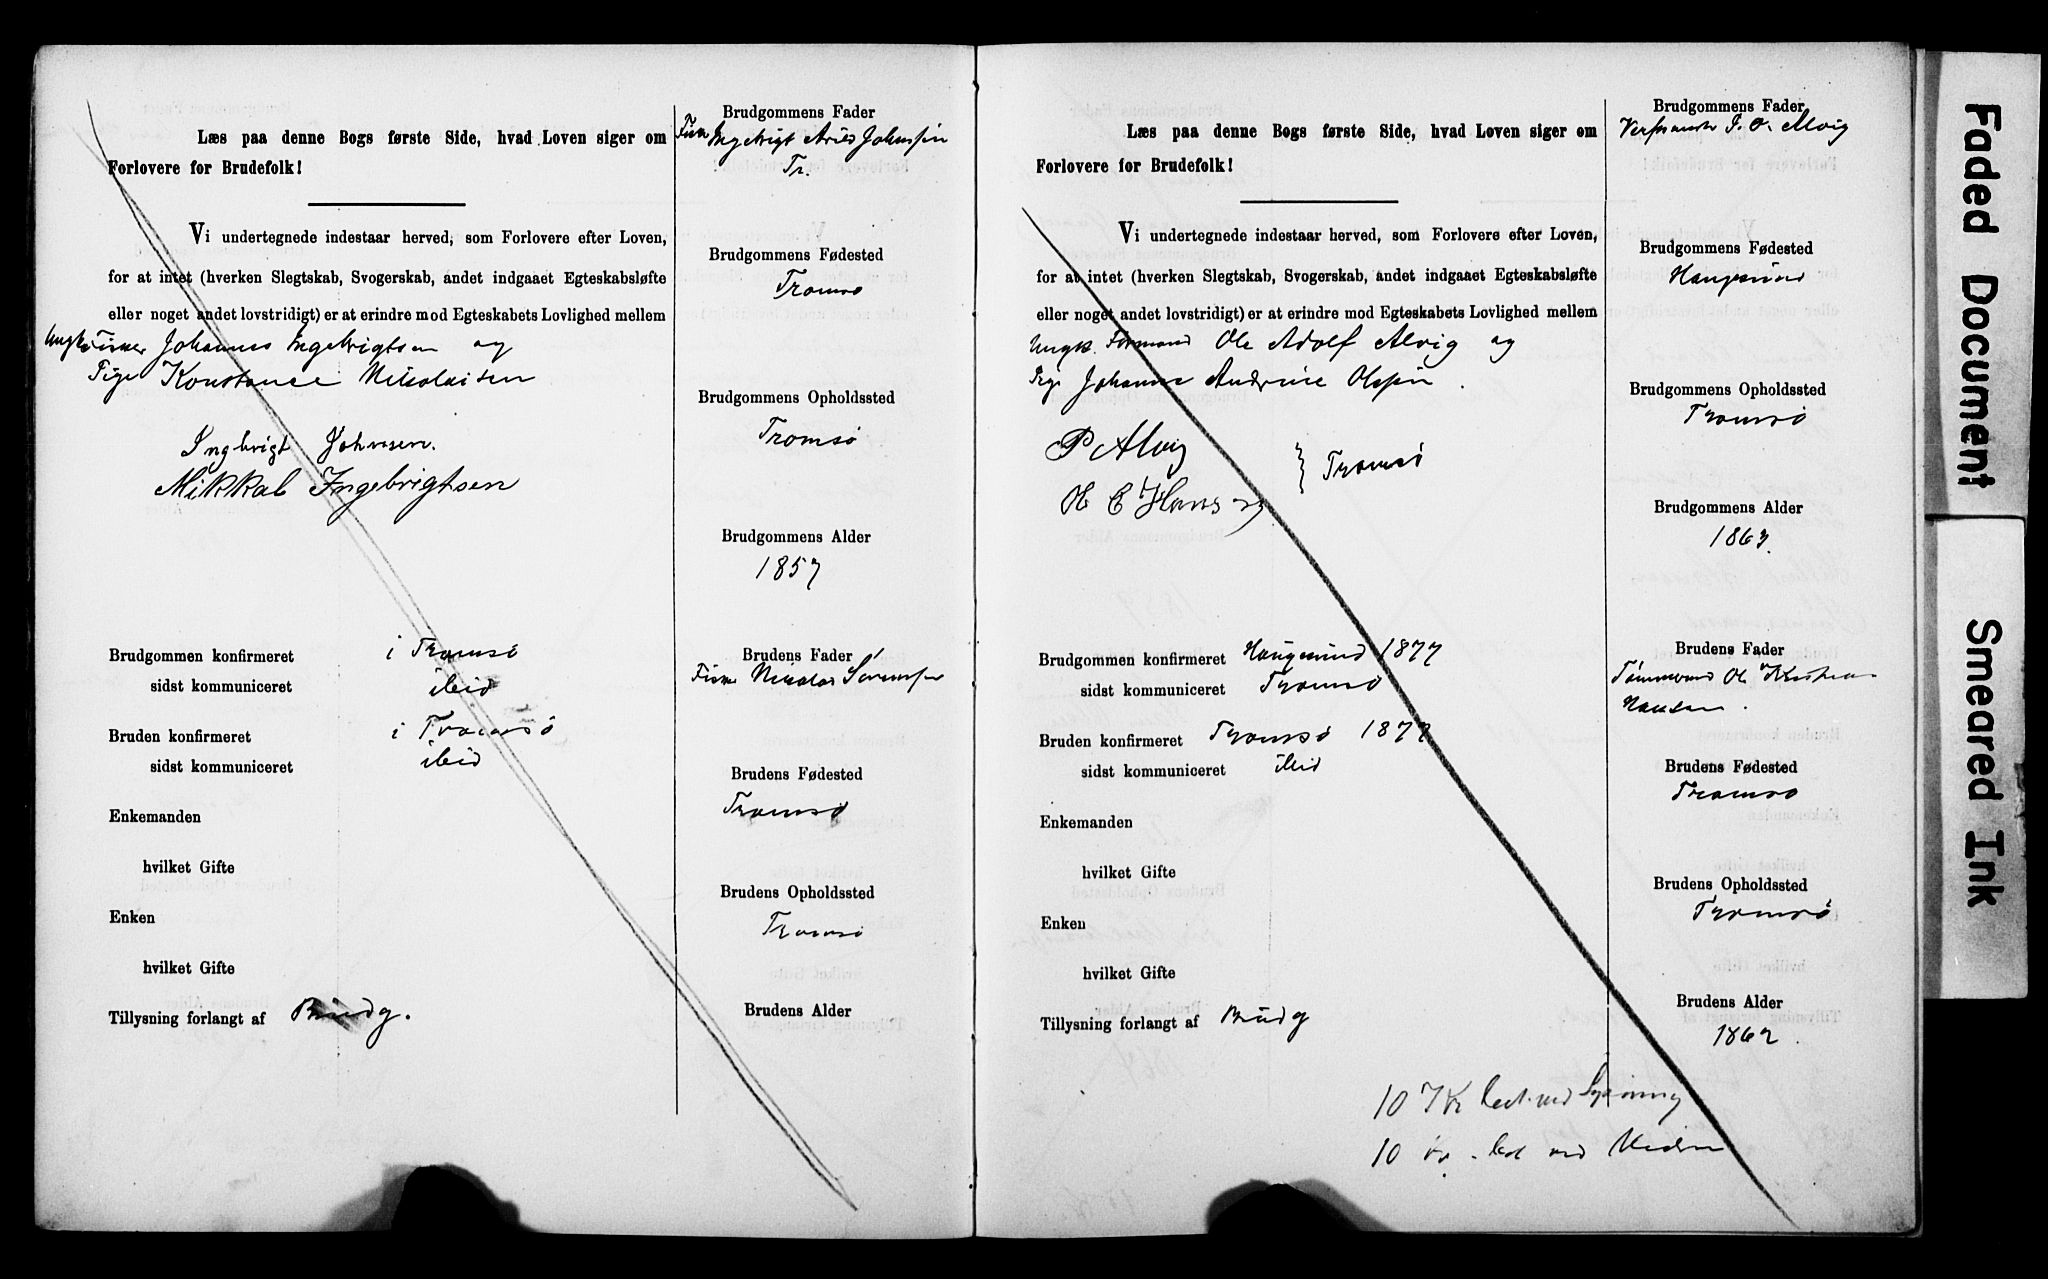 Læs paa denne Bogs første Side, hvad Loven siger om
Forlovere for Brudefolk!
Vi undertegnede indestaar herved, som Forlovere efter Loven,
for at intet (hverken Slegtskab, Svogerskab, andet indgaaet Egteskabsløfte
eller noget andet lovstridigt) er at erindre mod Egteskabets Lovlighed mellem
Johannes Ingebrigtsen og
Pige Konstance Nikolaisen
Ingbrigt Johnsen.
Mikkal Ingebrigtsen
Brudgommen konfirmeret i Tromsø
sidst kommuniceret ibid
Bruden konfirmeret i Tromsø
sidst kommuniceret ibid
Enkemanden
hvilket Gifte
Enken
hvilket Gifte
Tillysning forlangt af Brudg.
Brudgommens Fader
Ingebrigt Johnsen
Tr.
Brudgommens Fødested
Tromsø
Brudgommens Opholdssted
Tromsø
Brudgommens Alder
1857
Brudens Fader
Nikolai Sørensen
Brudens Fødested
Tromsø
Brudens Opholdssted
Tromsø
Brudens Alder
Læs paa denne Bogs første Side, hvad Loven siger om
Forlovere for Brudefolk!
Vi undertegnede indestaar herved, som Forlovere efter Loven,
for at intet (hverken Slegtskab, Svogerskab, andet indgaaet Egteskabsløfte
eller noget andet lovstridigt) er at erindre mod Egteskabets Lovlighed mellem
Ungk. Formand Ole Adolf Alvig og
Pige Johanne Andrine Olssen.
P Alvig
H E Hansen } Tromsø
Brudgommen konfirmeret Haugesund 1877
sidst kommuniceret Tromsø
Bruden konfirmeret Tromsø 1877
sidst kommuniceret ibid
Enkemanden
hvilket Gifte
Enken
hvilket Gifte
Tillysning forlangt af Brudg
10 Kr bet. ved Lysning
10 ør. bet ved
Brudgommens Fader
Alvig
Brudgommens Fødested
Haugesund
Brudgommens Opholdssted
Tromsø
Brudgommens Alder
1863.
Brudens Fader
Tømmermd Ole Kristian
Hansen.
Brudens Fødested
Tromsø
Brudens Opholdssted
Tromsø
Brudens Alder
1862.
Faded Document
Smeared Ink